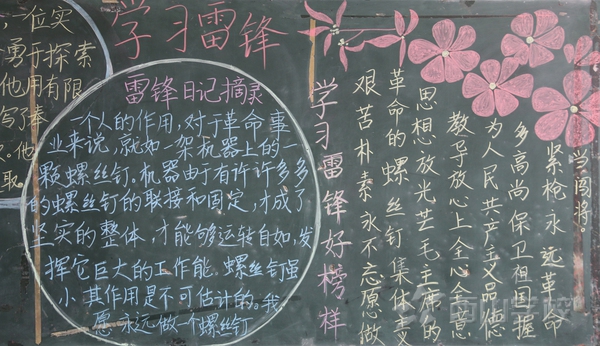 ,一位实
勇于探索
他用有限
写了奉
。他
取。
学习雷锋
雷锋日记摘录
一个人的作用,对于革命事
业来说,就如一架机器上的一
颗螺丝钉。机器由于有许许多多
的螺丝钉的联接和固定,才成了
坚实的整体,才能够运转自如,发
挥它巨大的工作能。螺丝钉虽
小,其作用是不可估计的。我
愿永远做一个螺丝钉
学习雷锋好榜样
艰苦朴素永不忘愿做
革命的螺丝钉集体主义
思想放光芒毛主席的
教导放心上全心全意
为人民共产主义品德
多高尚保卫祖国握
紧枪永远革命
当闯将。